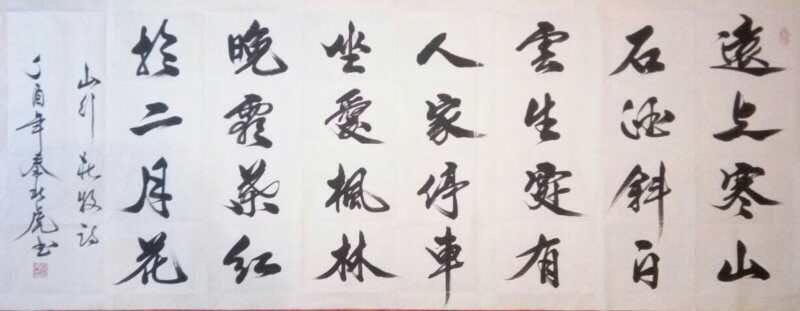 遠上寒山
石径斜白
雲生處有
人家停車
坐愛楓林
晚霜葉红
於二月花
山行 杜牧诗
丁酉年秦 虎书